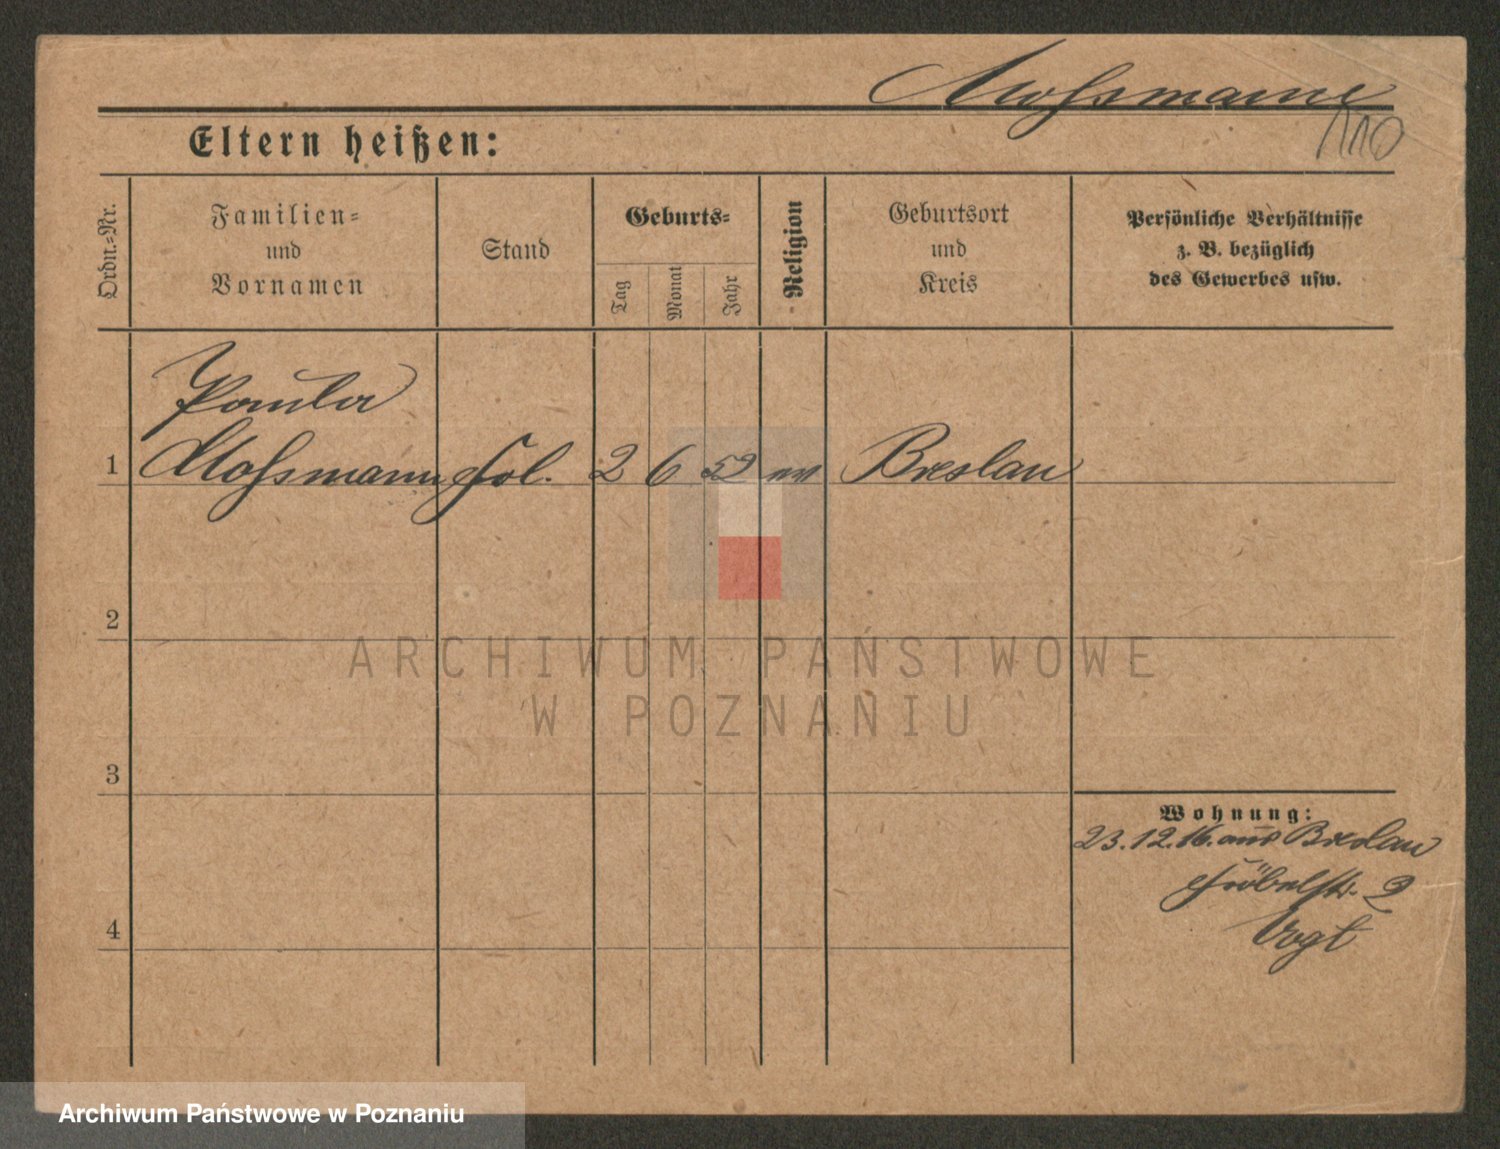 Mossmann
110
Eltern heißen:
Ordn.-Nr.
Familien-
und
Vornamen
Stand
Geburts-
Tag
Monat
Jahr
Religion
Geburtsort
und
Kreis
Persönliche Verhältnisse
z. B. bezüglich
des Gewerbes usw.
Paula
1 Mossmann Frl. 2 6 52 ev Breslau
2
3
4
Wohnung:
23.12.16. aus Breslau
Fröbelstr. 2
Vogt
ARCHIWUM PAŃSTWOWE
W POZNANIU
Archiwum Państwowe w Poznaniu